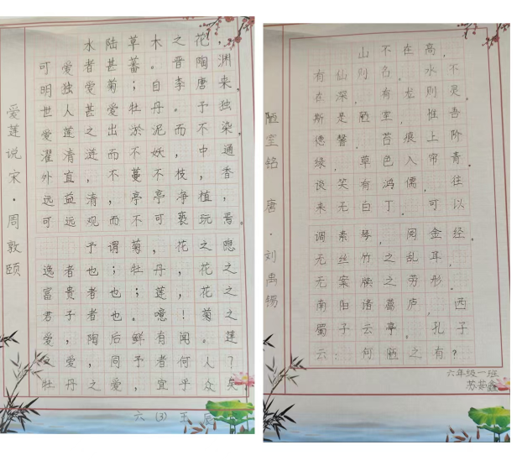 爱莲说 宋·周敦颐
水陆草木之花，
可爱者甚蕃。晋陶渊
明独爱菊；自李唐来，
世人甚爱牡丹。予独
爱莲之出淤泥而不染，
濯清涟而不妖，中通
外直，不蔓不枝，香
远益清，亭亭净植，
可远观而不可亵玩焉。
予谓菊，花之隐
逸者也；牡丹，花之
富贵者也；莲，花之
君子者也。噫！菊之
爱，陶后鲜有闻。莲
之爱，同予者何人？
牡丹之爱，宜乎众矣
六（3） 王
陋室铭 唐·刘禹锡
山不在高，
有仙则名。水不
在深，有龙则灵。
斯是陋室，惟吾
德馨。苔痕上阶
绿，草色入帘青。
谈笑有鸿儒，往
来无白丁。可以
调素琴，阅金经。
无丝竹之乱耳，
无案牍之劳形。
南阳诸葛庐，西
蜀子云亭。孔子
云：何陋之有？
六年级一班
苏